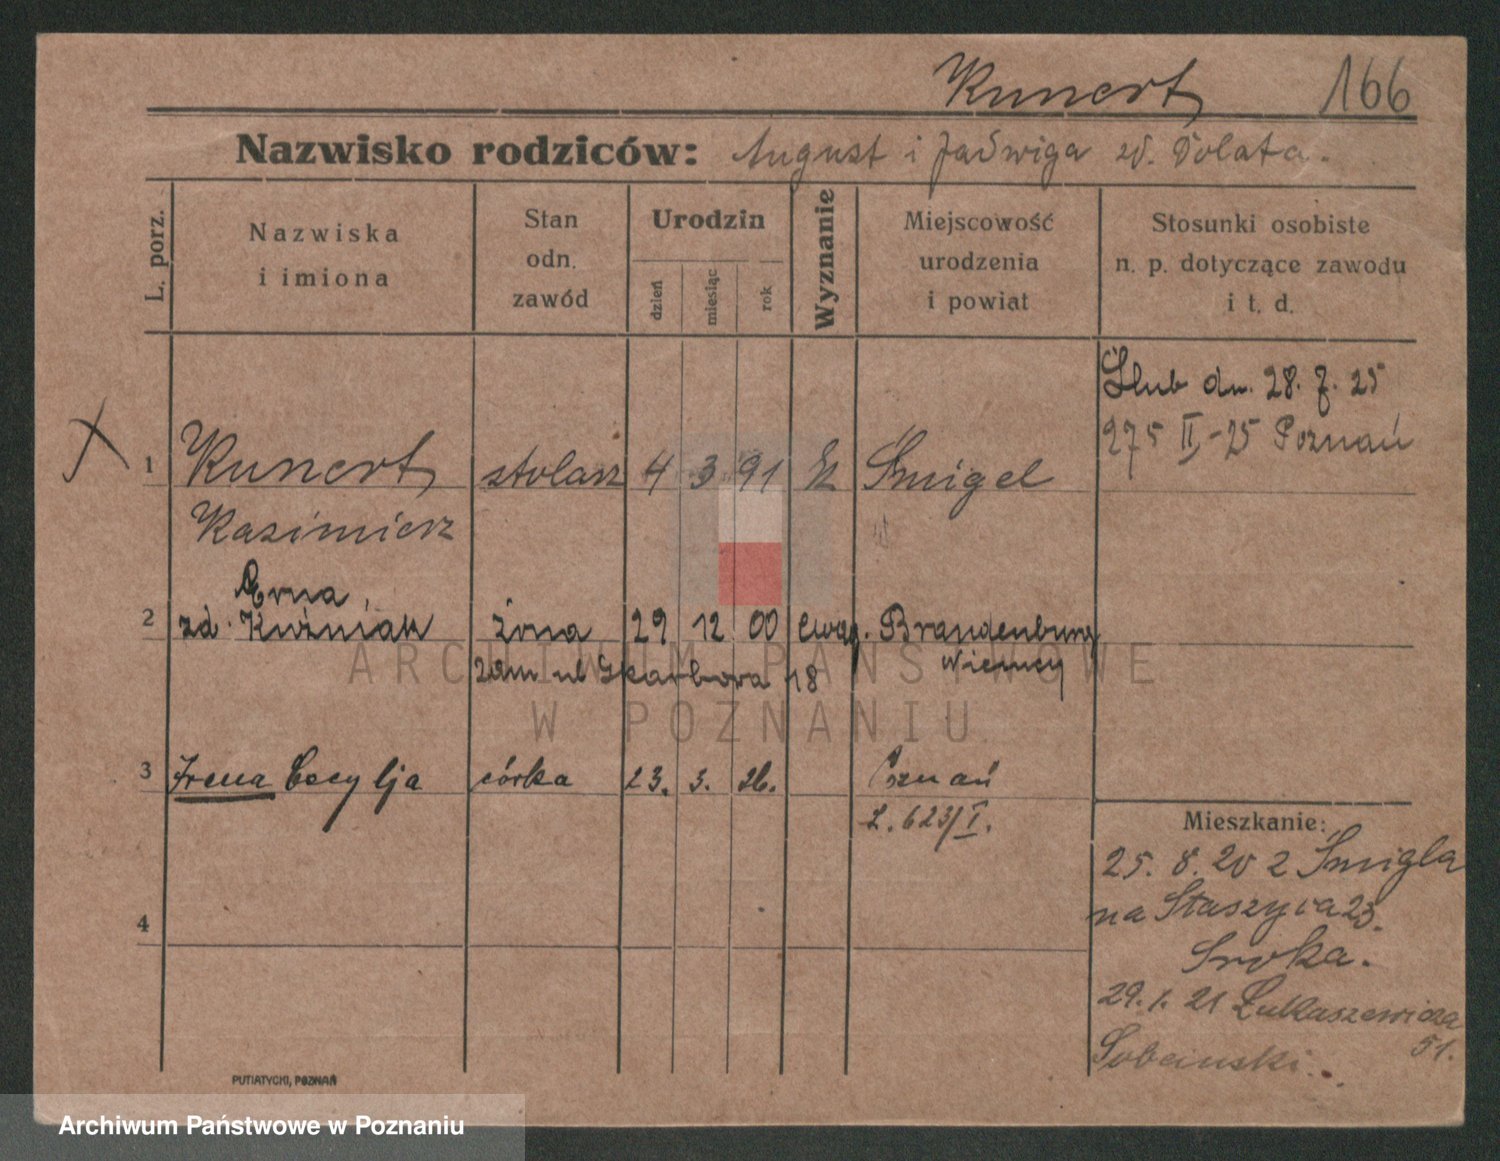 Kunert 166
Nazwisko rodziców: August i Jadwiga zd. Dolata.
L. porz.
Nazwiska
i imiona
Stan
odn.
zawód
Urodzin
dzień
miesiąc
rok
Wyznanie
Miejscowość
urodzenia
i powiat
Stosunki osobiste
n. p. dotyczące zawodu
i t. d.
Ślub dn. 28. 7. 25
275 II-25 Poznań
1 Kunert stolarz 4 3 91 Śmigel
Kazimierz
Erna
2 zd. Kuźniak żona 29 12 00 ewag. Brandenburg
zam ul Skarbova 18 Niemcy
3 Irena Cecylja córka 23. 3. 26. Poznań
L. 623/I.
Mieszkanie:
25. 8. 20 z Śmigla
na Staszyca 23.
Sroka.
4
29. 1. 21 Łukaszewicza
51.
PUTIATYCKI, POZNAŃ
ARCHIWUM PAŃSTWOWE
W POZNANIU
Archiwum Państwowe w Poznaniu